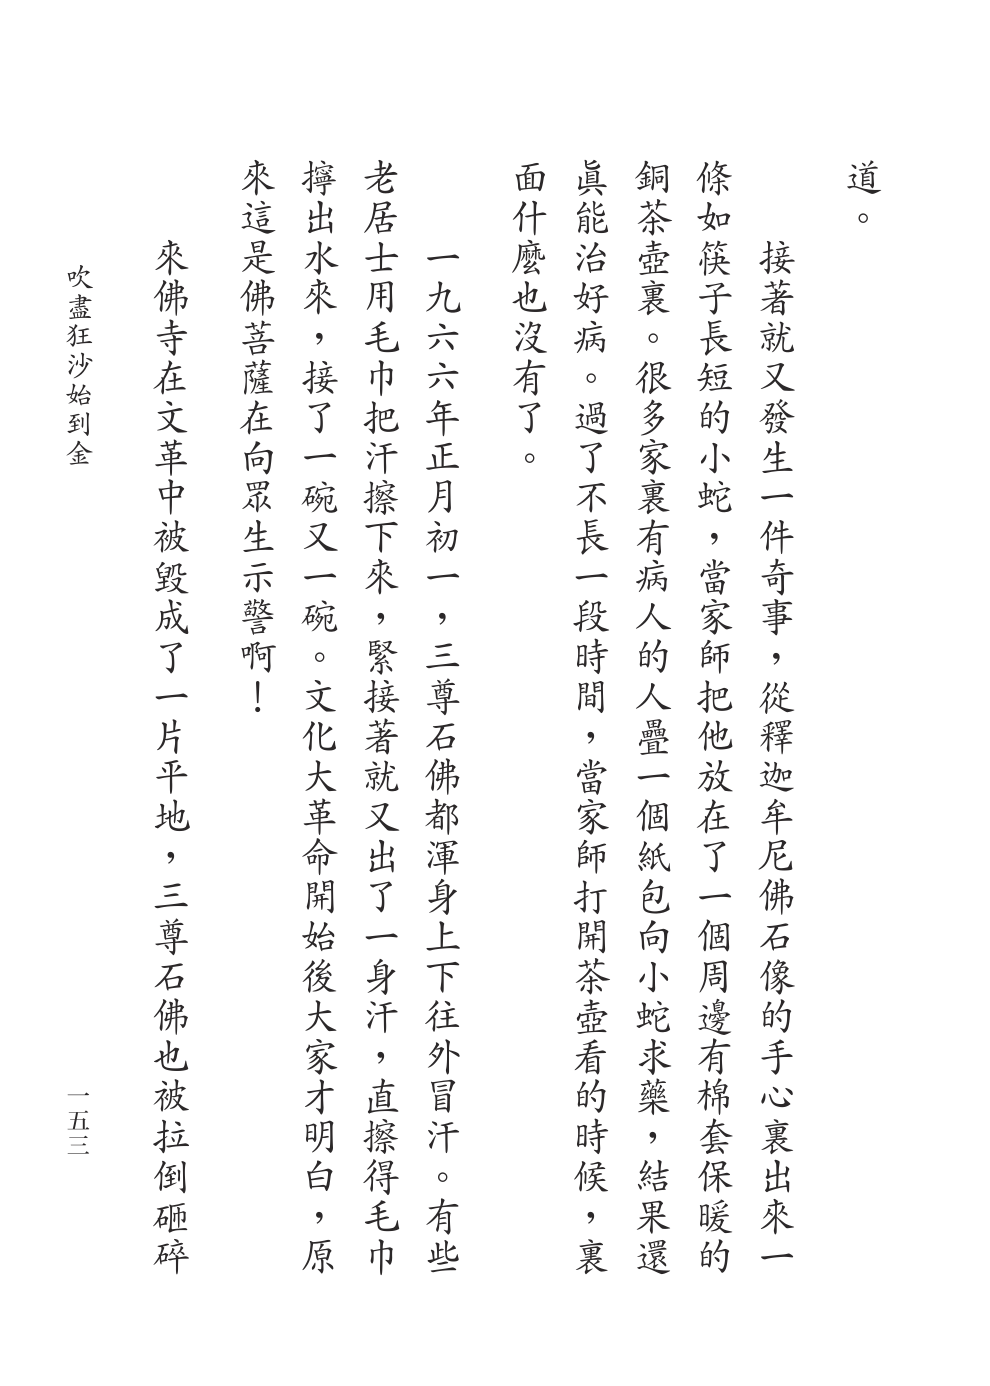 道。
接著就又發生一件奇事，從釋迦牟尼佛石像的手心裏出來一
條如筷子長短的小蛇，當家師把他放在了一個周邊有棉套保暖的
銅茶壺裏。很多家裏有病人的人疊一個紙包向小蛇求藥，結果還
眞能治好病。過了不長一段時間，當家師打開茶壺看的時候，裏
面什麼也沒有了。
一九六六年正月初一，三尊石佛都渾身上下往外冒汗。有些
老居士用毛巾把汗擦下來，緊接著就又出了一身汗，直擦得毛巾
擰出水來，接了一碗又一碗。文化大革命開始後大家才明白，原
來這是佛菩薩在向眾生示警啊！
來佛寺在文革中被毀成了一片平地，三尊石佛也被拉倒砸碎
吹盡狂沙始到金
一五三